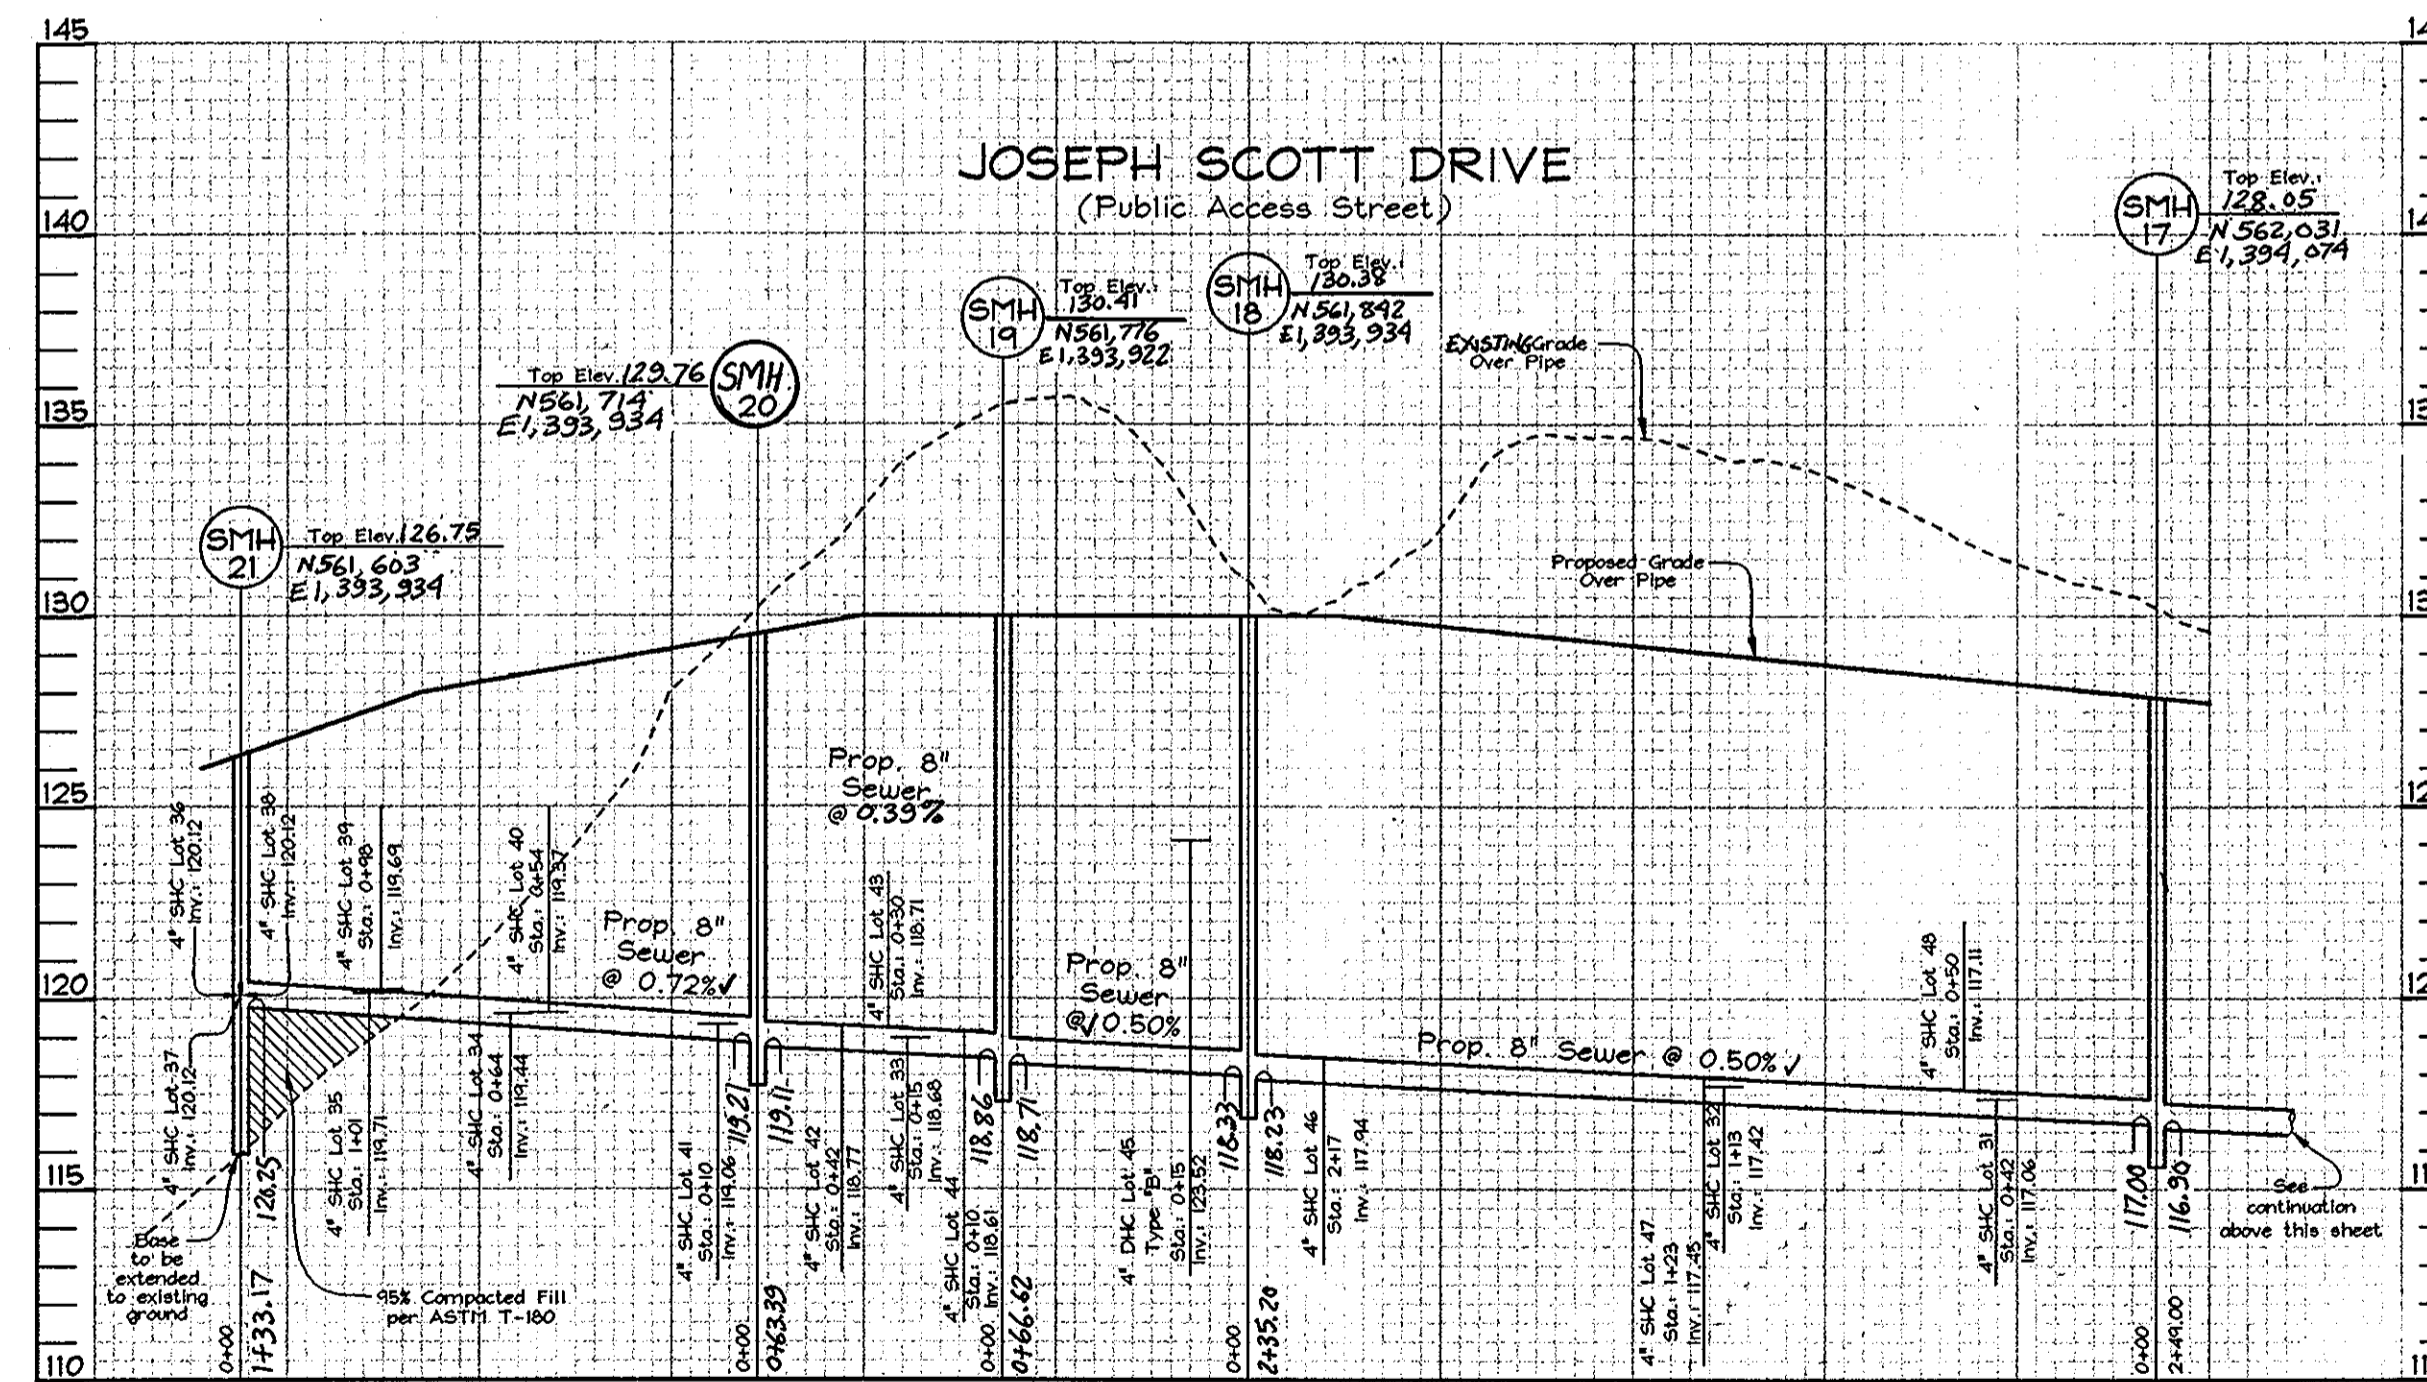 145
140
135
130
125
120
115
110
JOSEPH SCOTT DRIVE
(Public Access Street)
SMH
21
Top Elev. 126.75
N561,603
E1,393,934
Top Elev. 129.76
N561,714
E1,393,934
SMH
20
SMH
19
Top Elev.:
130.41
N561,776
E1,393,922
SMH
18
Top Elev.:
130.38
N561,842
E1,393,934
SMH
17
Top Elev.:
128.05
N562,031
E1,394,074
EXISTING Grade
Over Pipe
Proposed Grade
Over Pipe
Prop. 8"
Sewer
@ 0.72% ✓
Prop. 8"
Sewer
@ 0.39%
Prop. 8"
Sewer
@ ✓ 0.50%
Prop. 8" Sewer @ 0.50% ✓
4" SHC Lot 36
Inv.: 120.12
4" SHC Lot 38
Inv.: 120.12
4" SHC Lot 39
Sta.: 0+98
Inv.: 119.69
4" SHC Lot 40
Sta.: 0+54
Inv.: 119.37
4" SHC Lot 43
Sta.: 0+30
Inv.: 118.71
4" SHC Lot 48
Sta.: 0+50
Inv.: 117.11
4" SHC Lot 37
Inv.: 120.12
4" SHC Lot 35
Sta.: 1+01
Inv.: 119.71
4" SHC Lot 34
Sta.: 0+64
Inv.: 119.44
4" SHC Lot 41
Sta.: 0+10
Inv.: 119.06
119.21
119.11
4" SHC Lot 42
Sta.: 0+42
Inv.: 118.77
4" SHC Lot 33
Sta.: 0+15
Inv.: 118.68
4" SHC Lot 44
Sta.: 0+10
Inv.: 118.61
118.86
118.71
4" DHC Lot 45
Type "B"
Sta.: 0+15
Inv.: 123.52
118.33
118.23
4" SHC Lot 46
Sta.: 2+17
Inv.: 117.94
4" SHC Lot 47
Sta.: 1+23
Inv.: 117.45
4" SHC Lot 32
Sta.: 1+13
Inv.: 117.42
4" SHC Lot 31
Sta.: 0+42
Inv.: 117.06
117.00
116.90
See
continuation
above this sheet
Base
to be
extended
to existing
ground
95% Compacted Fill
per ASTM T-180
0+00
1+33.17
0+00
0+63.39
0+00
0+66.62
0+00
2+35.20
0+00
2+49.00